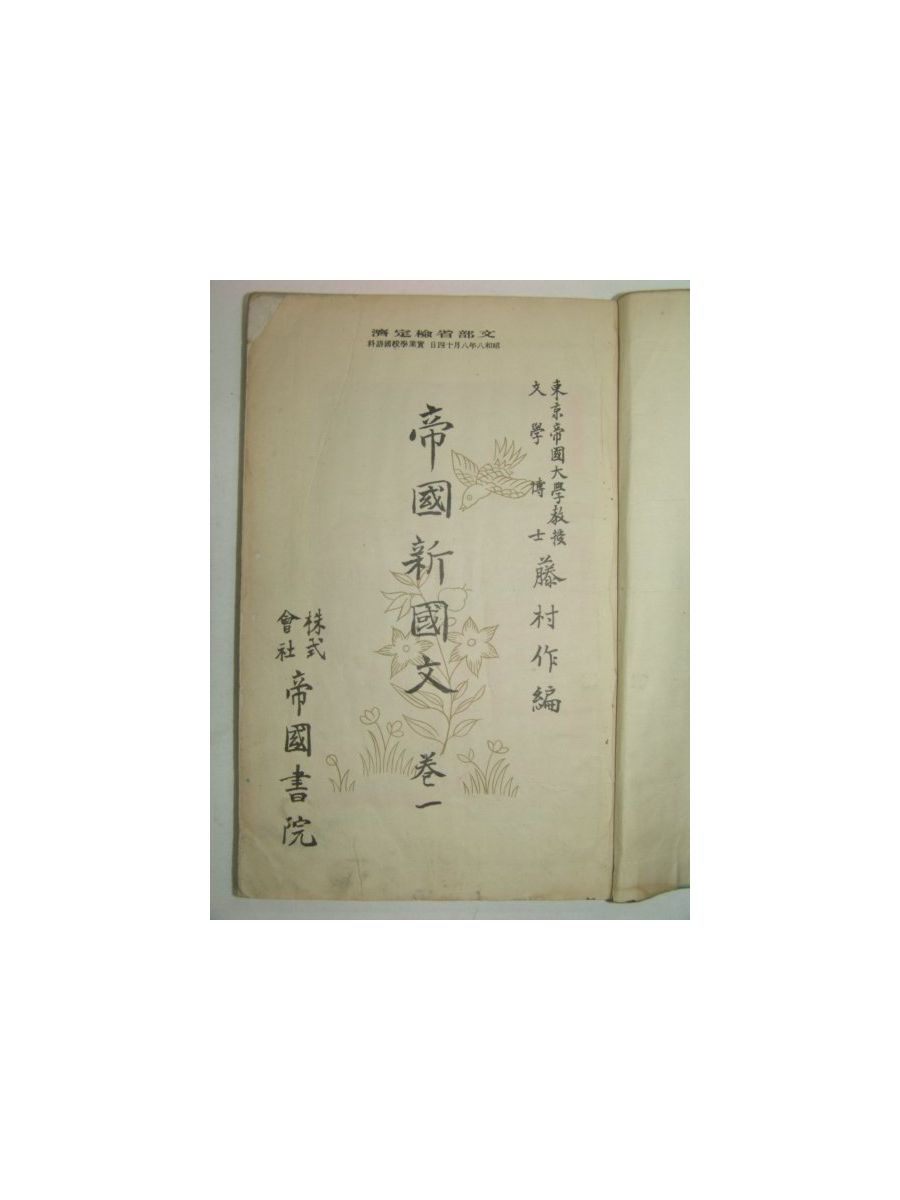 文部省檢定濟
昭和八年八月十四日 實業學校國語科
東京帝國大學教授
文學博士
藤村作編
帝國新國文 巻一
株式
會社
帝國書院